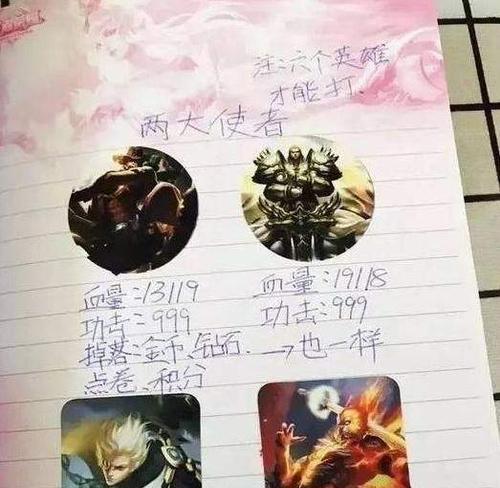 注:六个英雄
才能打.
两大使者
血量:13119
功击:999
掉落:金币.钻石.
点卷.积分
血量:19118
功击:999
→也一样